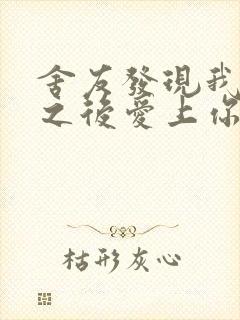 舍友發現我
之後愛上你
枯形灰心